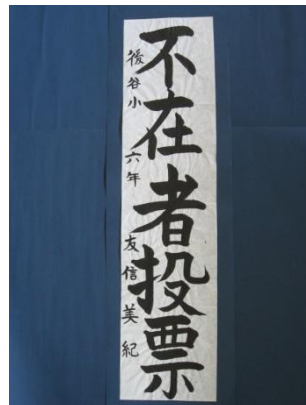 不在者投票
後谷小 六年 友信美紀